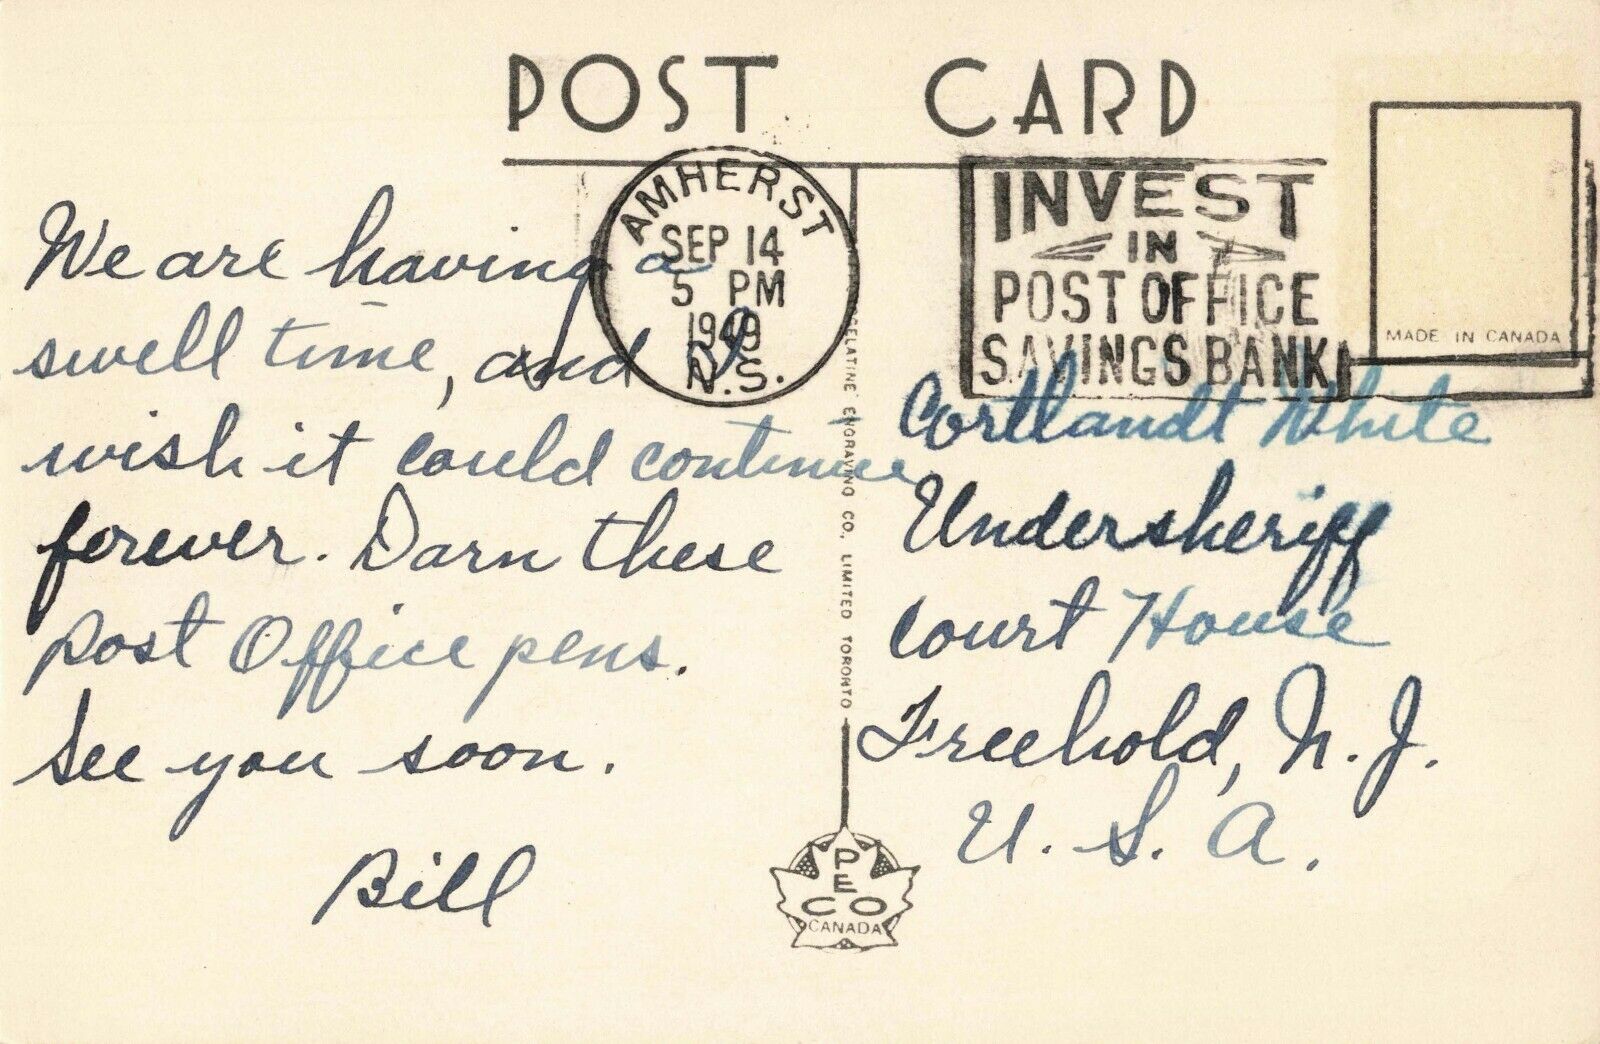 POST CARD
AMHERST
SEP 14
5 PM
1949
N.S.
INVEST
IN
POST OFFICE
SAVINGS BANK
MADE IN CANADA
We are having a
swell time, and I
wish it could continue
forever. Darn these
Post Office pens.
See you soon.
Bill
GELATINE ENGRAVING CO., LIMITED TORONTO
Cortlandt White
Undersheriff
Court House
Freehold, N. J.
U. S. A.
PECO
CANADA